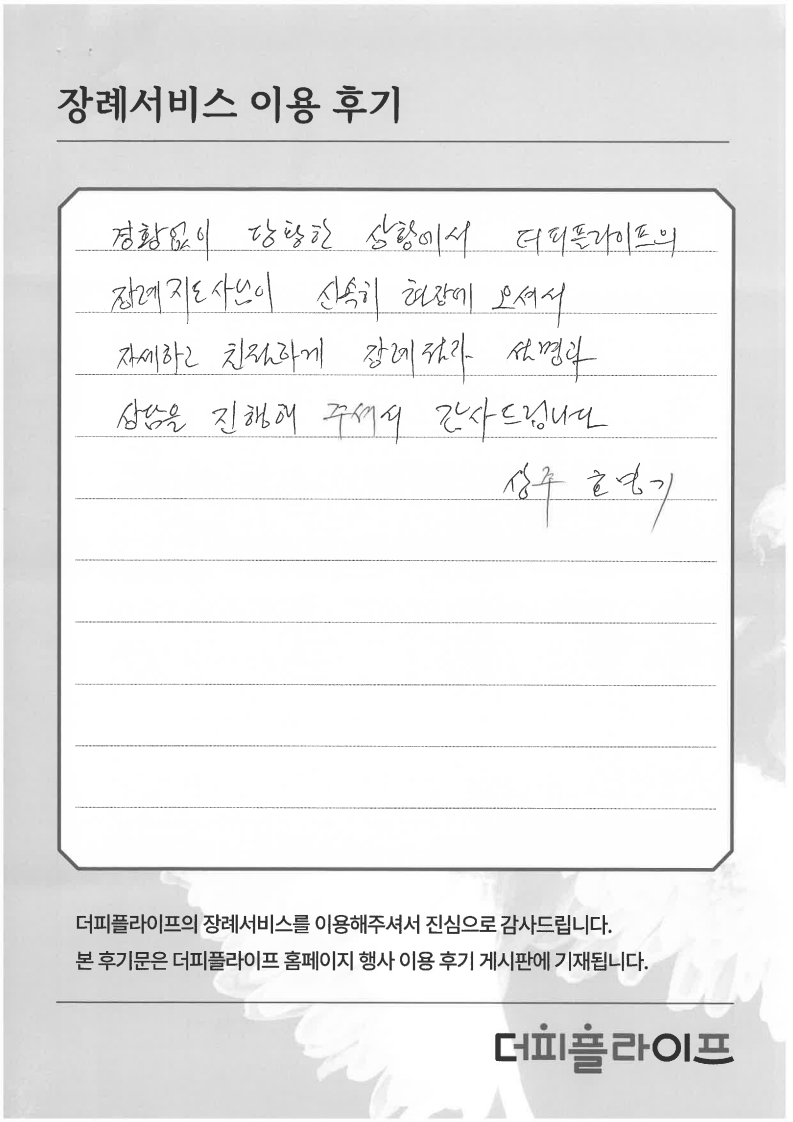 장례서비스 이용 후기
경황없이 당황한 상황에서 더피플라이프의
장례지도사님이 신속히 현장에 오셔서
자세하고 친절하게 장례절차 설명과
상담을 진행해 주셔서 감사드립니다
상주
더피플라이프의 장례서비스를 이용해주셔서 진심으로 감사드립니다.
본 후기문은 더피플라이프 홈페이지 행사 이용 후기 게시판에 기재됩니다.
더피플라이프